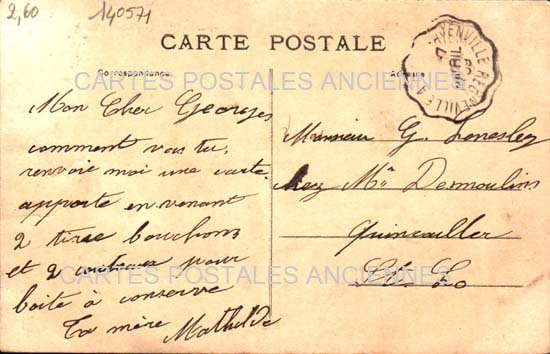 2,60
140571
CARTES POSTALES ANCIENNES
CARTE POSTALE
Correspondance
Adresse
HYENVILLE REGNEVILLE
7
AVRIL
Mon Cher Georges
comment vas tu,
renvoie moi une carte
apporte en venant
2 tire bouchons
et 2 couteaux pour
boite à conserve
Ta mère Mathilde
Monsieur G.
chez Mr Desmoulins
Quincailler
St Lo
CARTES POSTALES ANCIENNES